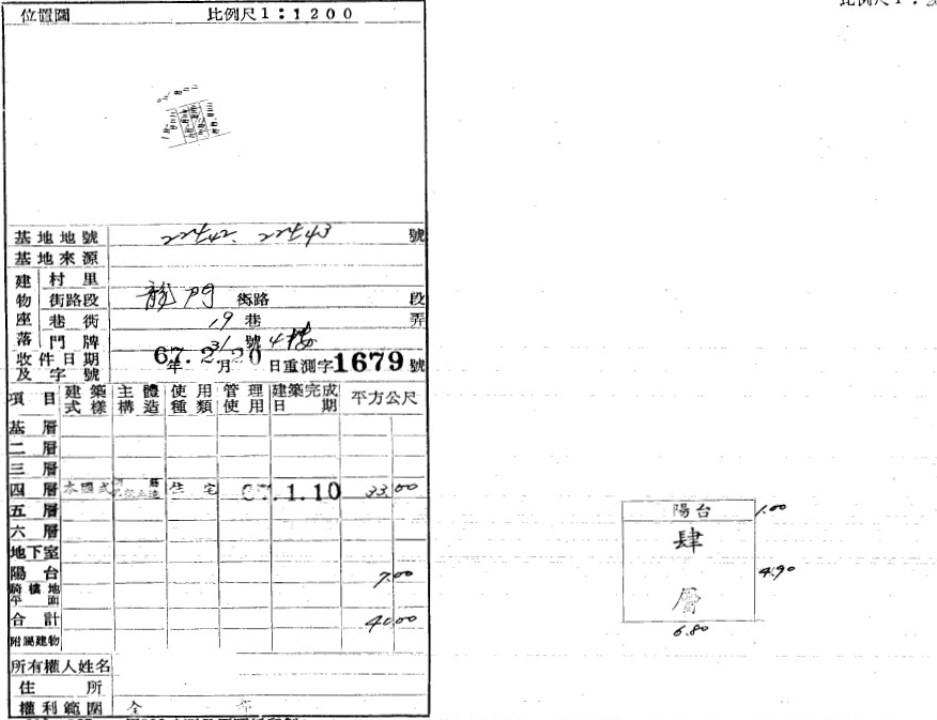 位置圖 比例尺1:1200
比例尺1:
基地地號 22-542. 22-543 號
基地來源
建物座落 村里
街路段 龍門 街路 段
巷衖 19 巷 弄
門牌 31 號 4樓
收件日期及字號 67.2.20 年 月 日重測字1679號
項目 建築式樣 主體構造 使用種類 管理使用 建築完成日期 平方公尺
基層
二層
三層
四層 本國式 住宅 67.1.10 33.00
五層
六層
地下室
陽台 7.00
騎樓地平面
合計 40.00
附屬建物
所有權人姓名
住所
權利範圍 全
陽台 1.00
肆
4.90
層
6.80